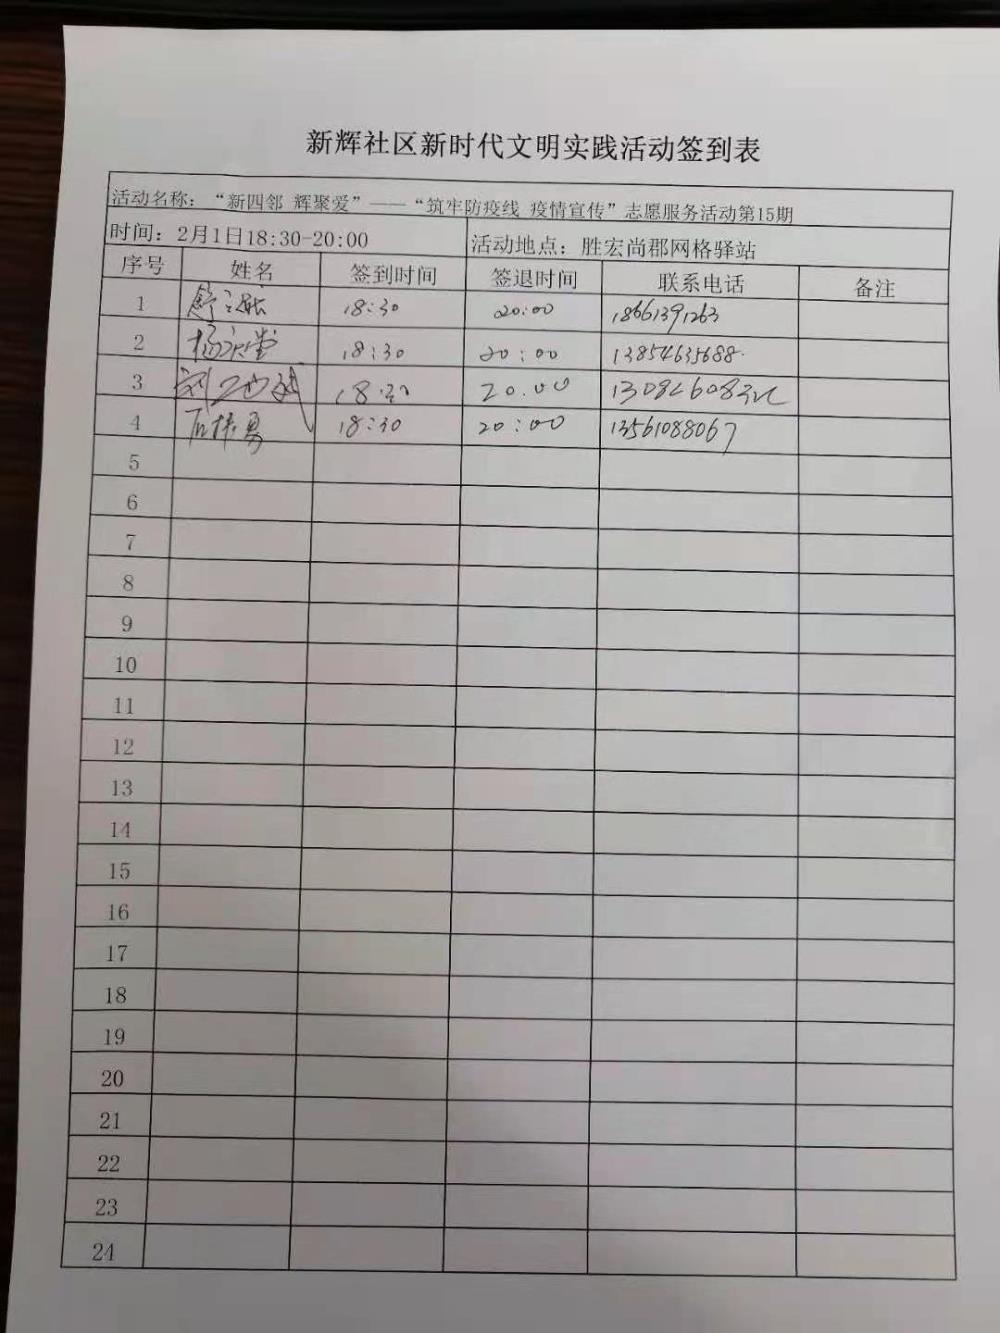 新辉社区新时代文明实践活动签到表
活动名称：“新四邻 辉聚爱”——“筑牢防疫线 疫情宣传”志愿服务活动第15期
时间：2月1日18:30-20:00 活动地点：胜宏尚郡网格驿站
序号 姓名 签到时间 签退时间 联系电话 备注
1 18:30 20:00 18661391263
2 18:30 20:00 13854635688
3 18:30 20.00
4 18:30 20:00 13561088067
5
6
7
8
9
10
11
12
13
14
15
16
17
18
19
20
21
22
23
24